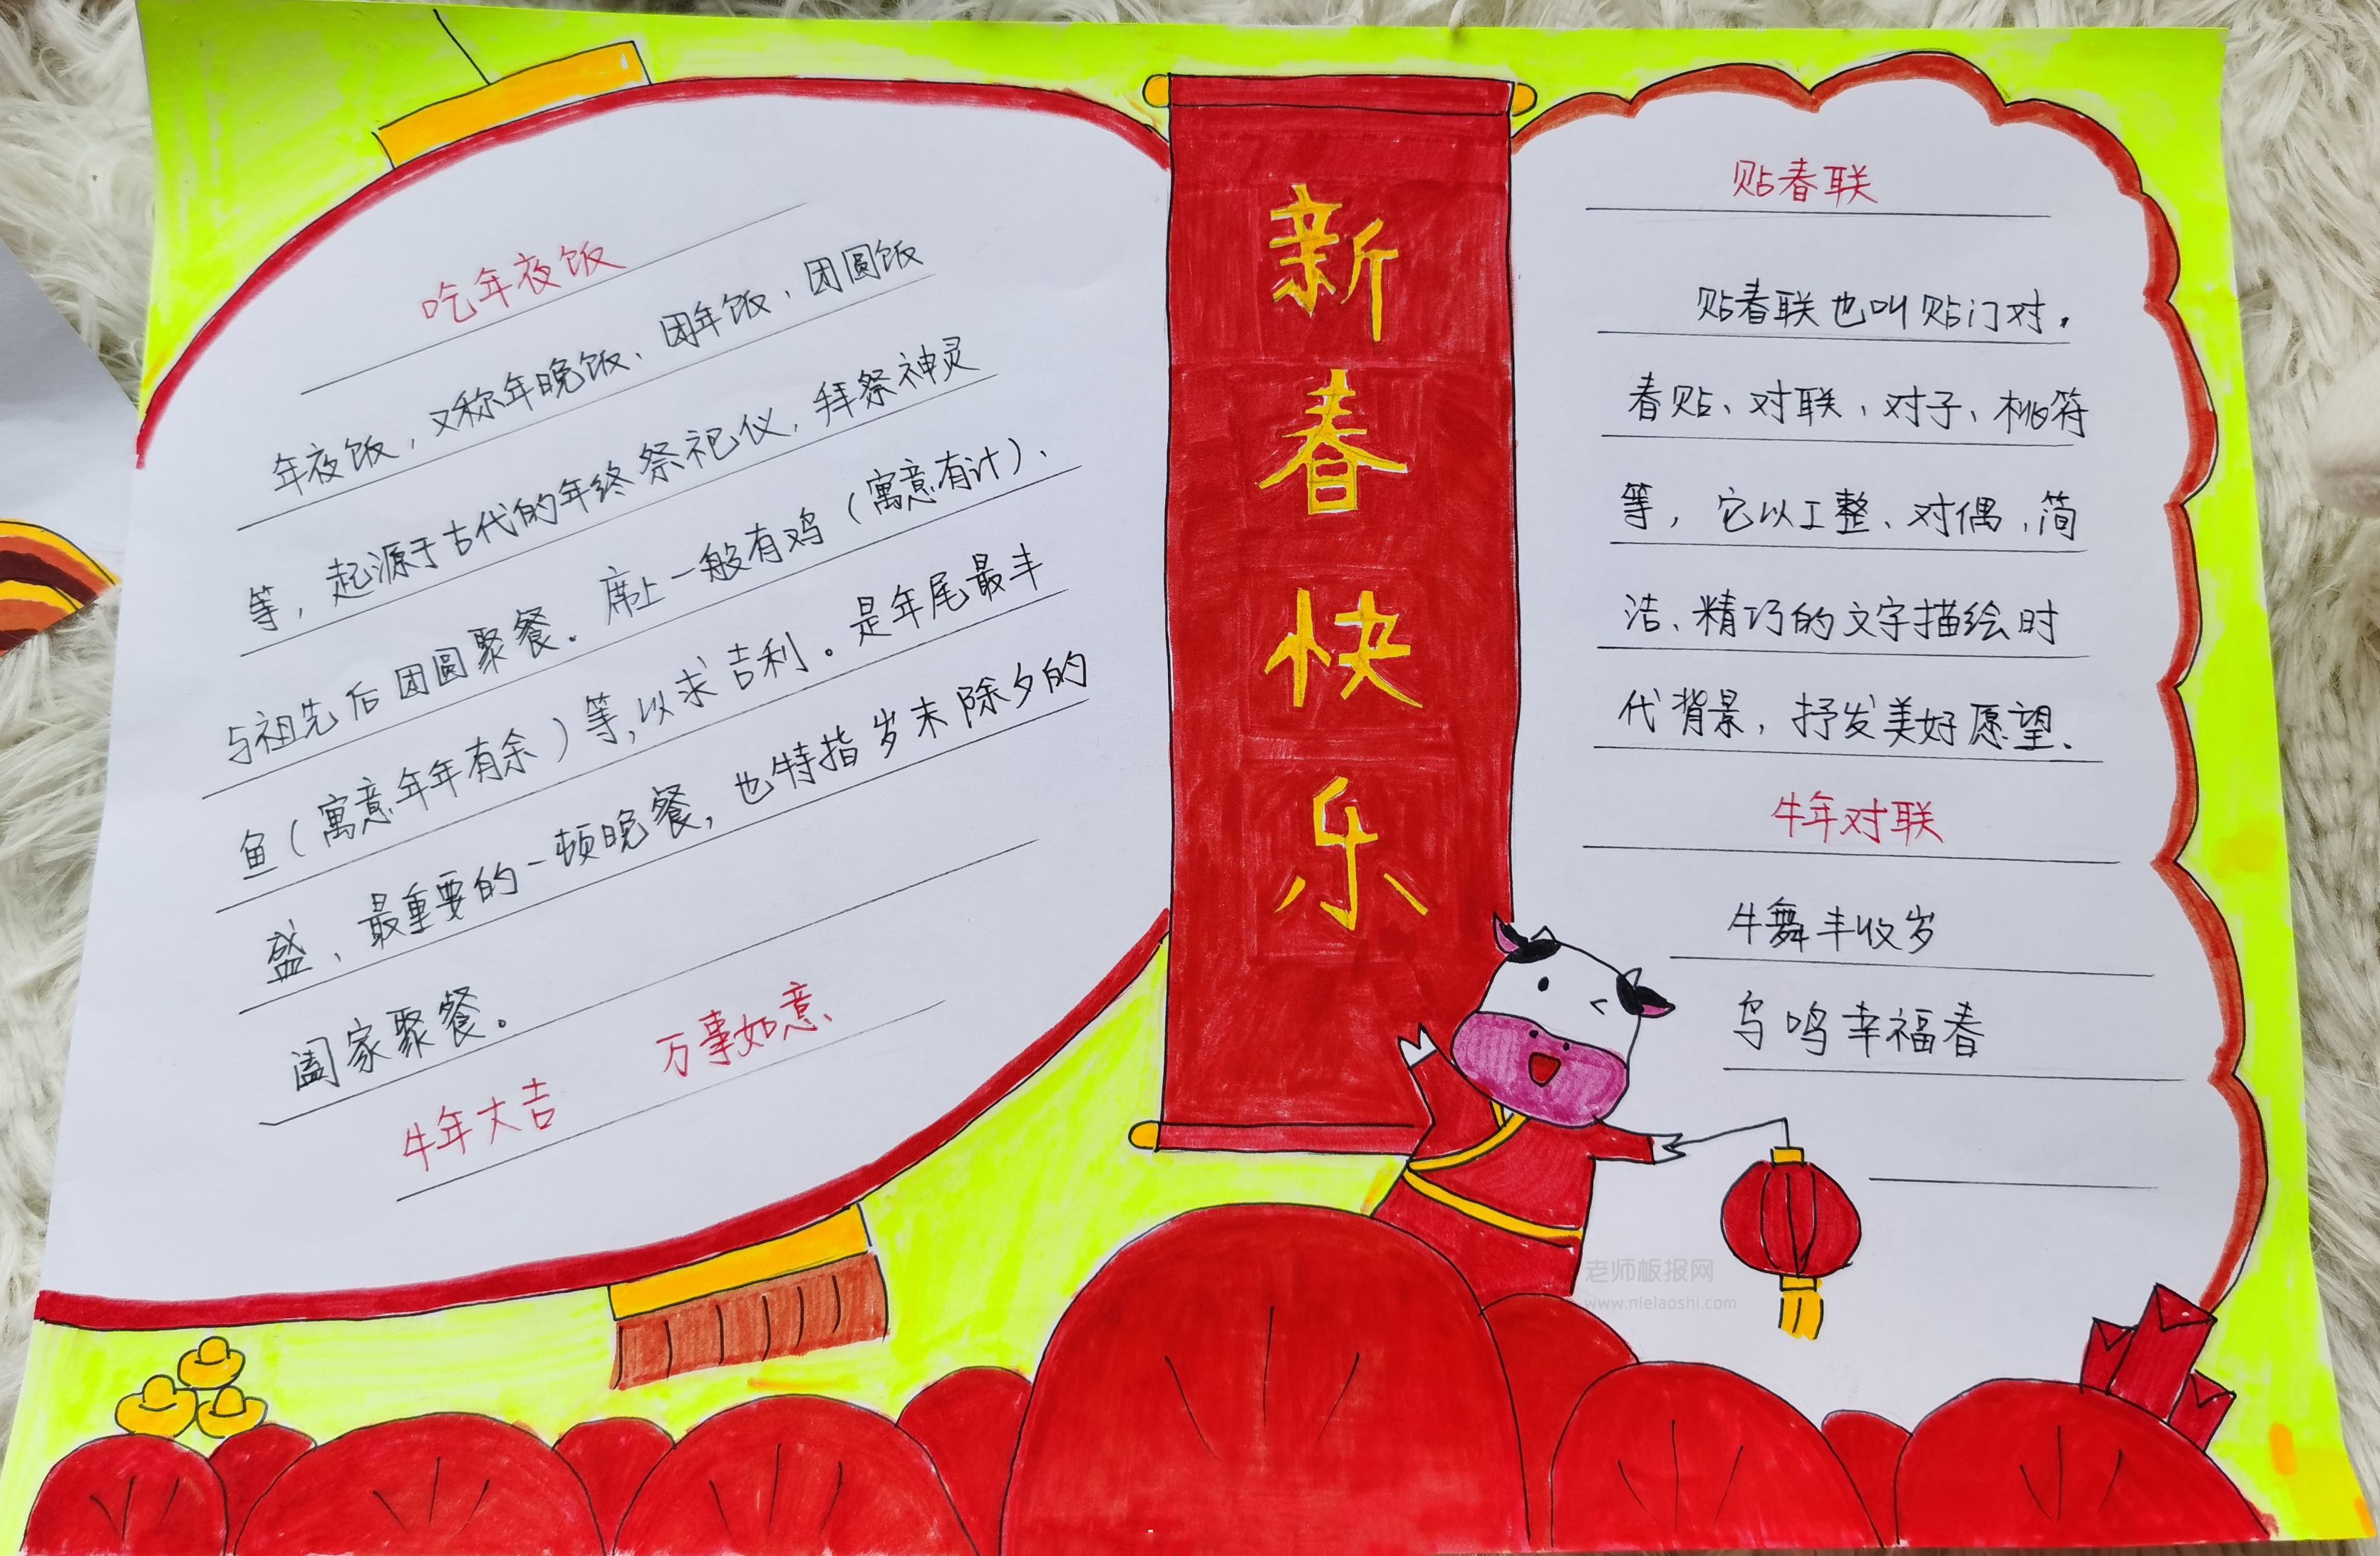 吃年夜饭
年夜饭，又称年晚饭、团年饭、团圆饭
等，起源于古代的年终祭祀仪，拜祭神灵
与祖先后团圆聚餐。席上一般有鸡（寓意有计）、
鱼（寓意年年有余）等，以求吉利。是年尾最丰
盛、最重要的一顿晚餐，也特指岁末除夕的
阖家聚餐。
牛年大吉 万事如意、
新
春
快
乐
贴春联
贴春联也叫贴门对，
春贴、对联、对子、桃符
等，它以工整、对偶、简
洁、精巧的文字描绘时
代背景，抒发美好愿望、
牛年对联
牛舞丰收岁
鸟鸣幸福春
老师板报网
www.nielaoshi.com